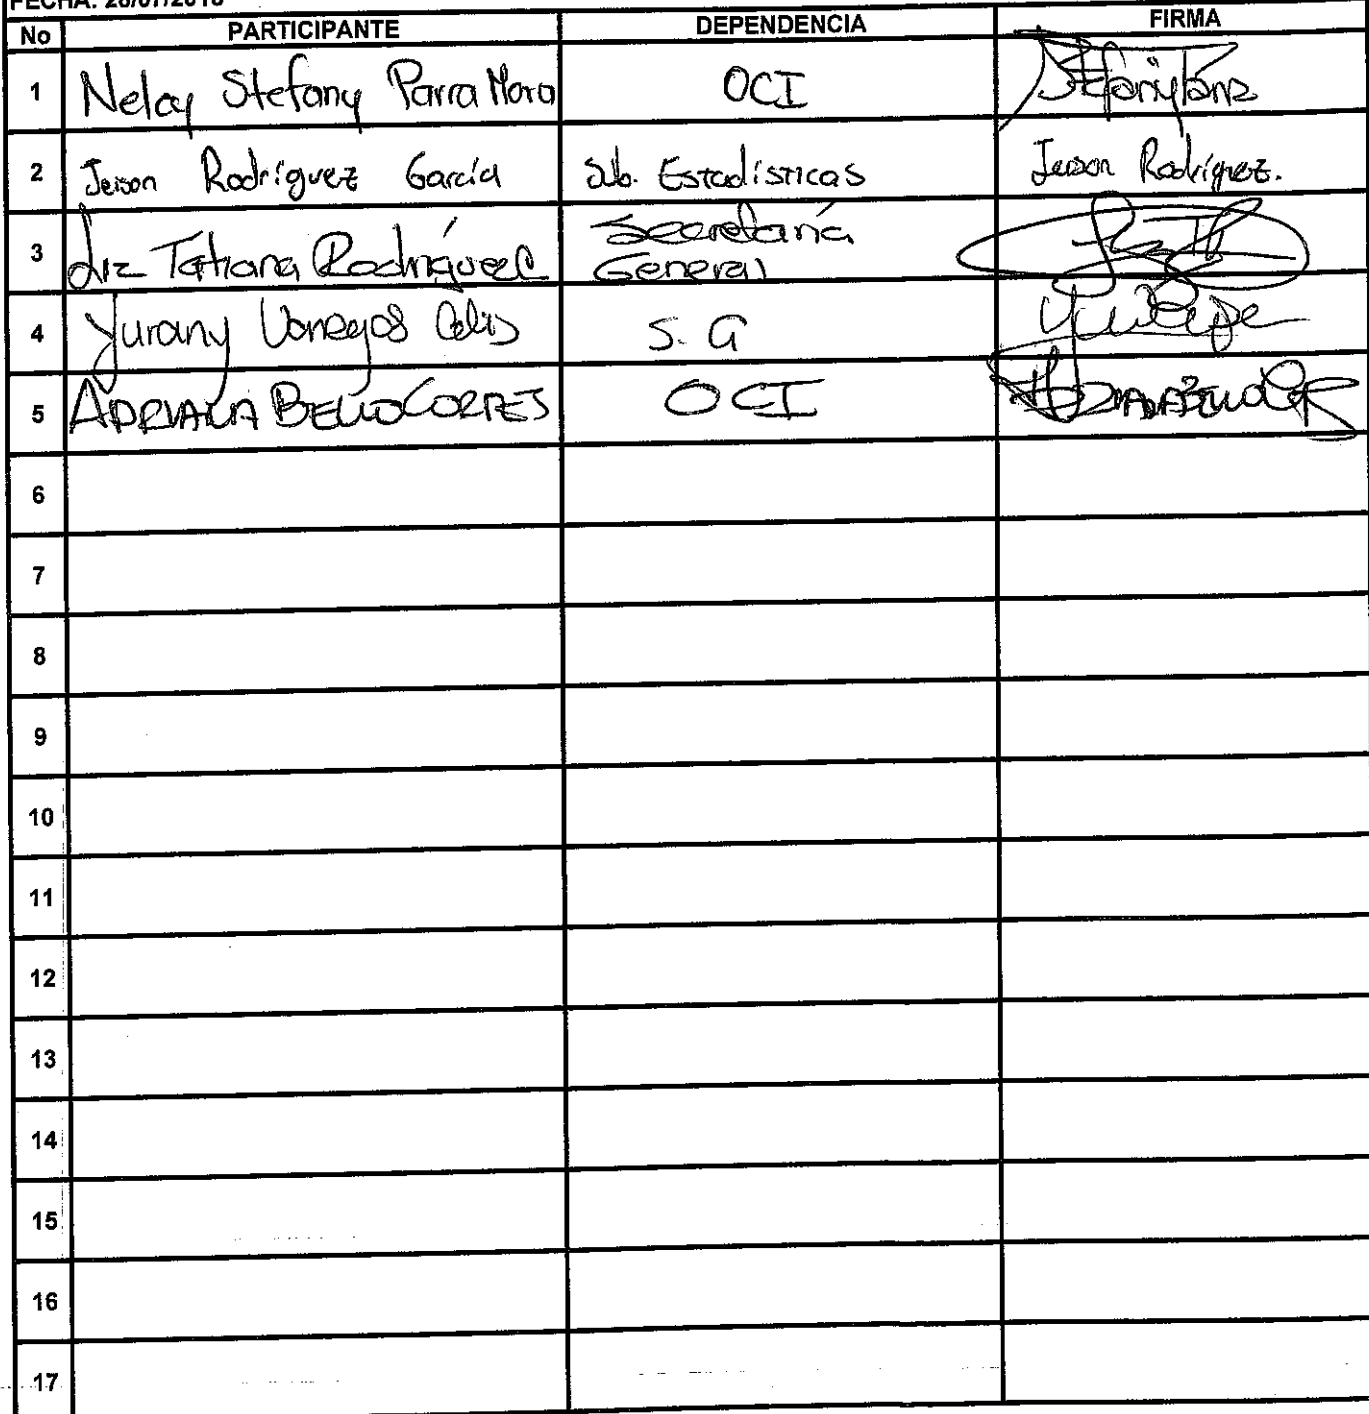 No PARTICIPANTE DEPENDENCIA FIRMA
1 Nelcy Stefany Parra Mora OCI
2 Jeison Rodríguez García Sub. Estadísticas Jeison Rodríguez.
3 Liz Tatiana Rodríguez C Secretaría
General
4 Yurany Vanegas Celis S. G
5 ADRIANA BELLO CORTES OCI
6
7
8
9
10
11
12
13
14
15
16
17